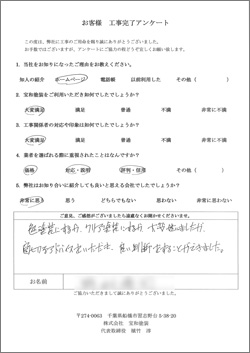 お客様　工事完了アンケート
この度は、弊社に工事のご用命を賜り誠にありがとうございました。
お手数ではございますが、アンケートにご協力の程どうぞ宜しくお願い致します。
1. 当社をお知りになったご理由をお教えください。
知人の紹介　ホームページ　電話帳　以前利用した　その他（　　　）
2. 宝和塗装をご利用いただき如何でしたでしょうか？
大変満足　満足　普通　不満　非常に不満
3. 工事関係者の対応や印象は如何でしたでしょうか？
大変満足　満足　普通　不満　非常に不満
4. 業者を選ばれる際に重視されたことはなんですか？
価格　対応・説明　評判・信用　その他（　　　）
5. 弊社はお知り合いに紹介しても良いと思える会社でしたでしょうか？
非常に思う　思う　どちらでもない　思わない　非常に思わない
ご意見、ご感想がございましたら遠慮なくお聞かせください。
お名前
ご協力いただきまして誠にありがとうございました。
〒274-0063　千葉県船橋市習志野台5-38-20
株式会社　宝和塗装
代表取締役　植竹　淳